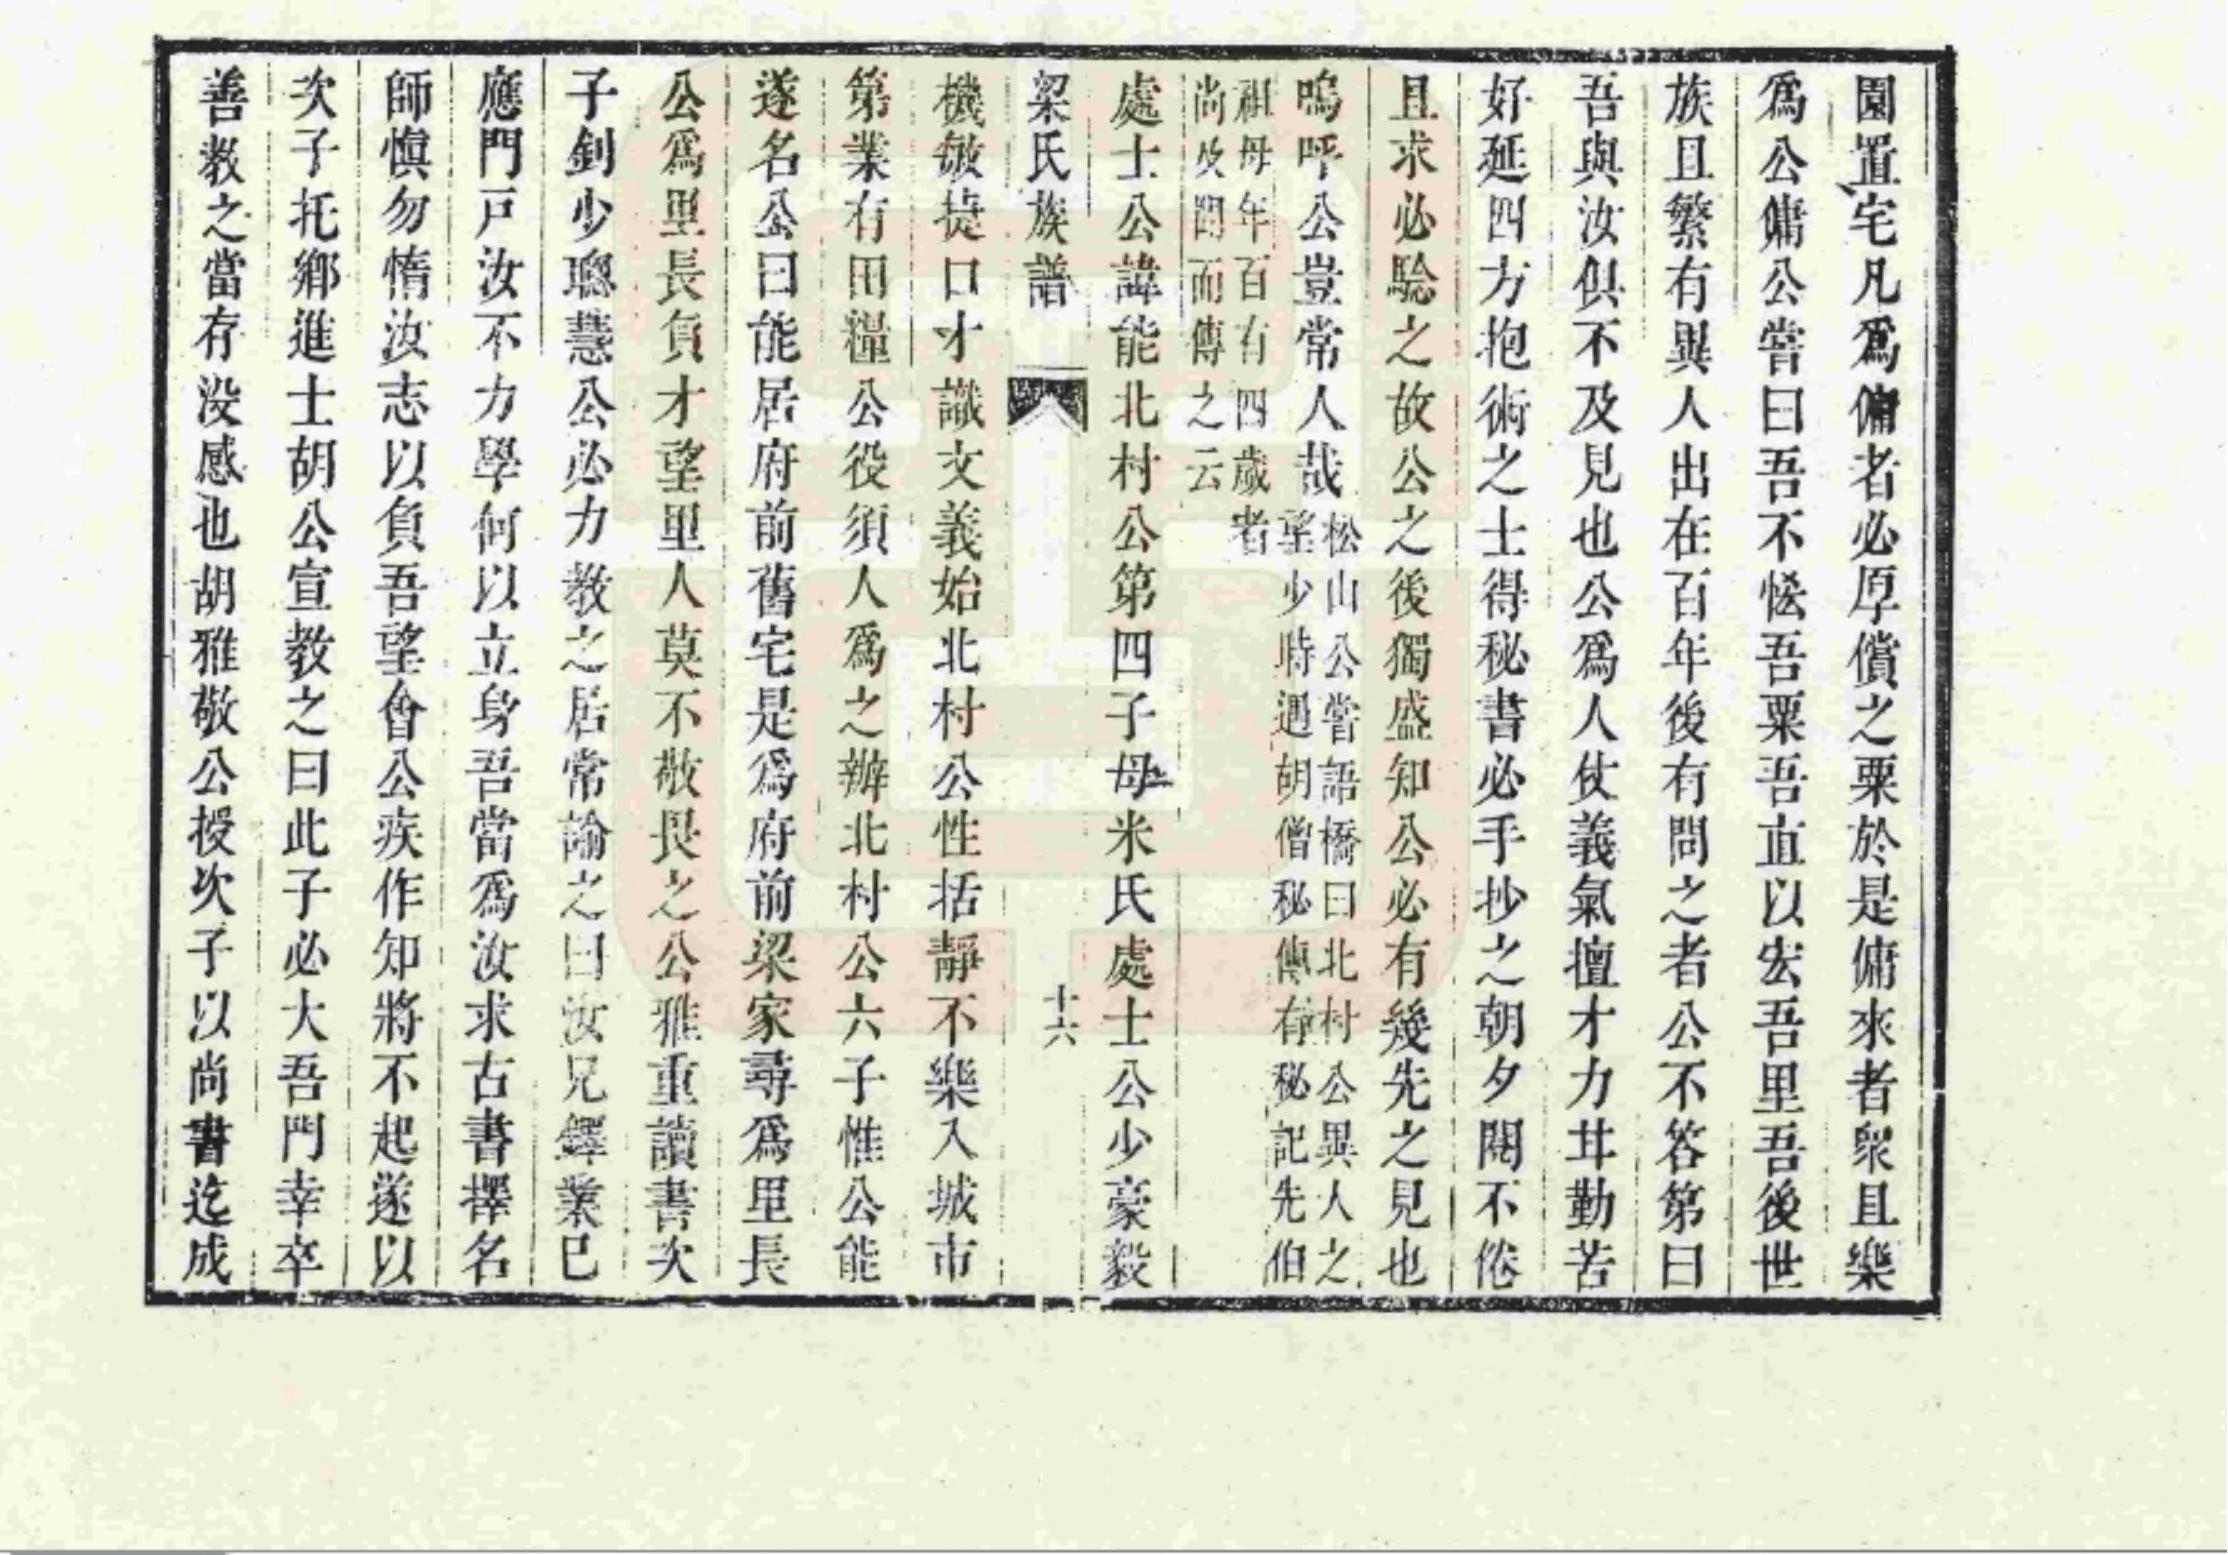 園置宅凡爲傭者必厚償之粟於是傭來者眾且樂
爲公傭公嘗曰吾不恡吾粟吾直以宏吾里吾後世
族且繁有異人出在百年後有問之者公不答第曰
吾與汝俱不及見也公爲人仗義氣擅才力甘勤苦
好延四方抱術之士得秘書必手抄之朝夕閱不倦
且求必驗之故公之後獨盛知公必有幾先之見也
嗚呼公豈常人哉
松山公嘗語橋曰北村公異人之
望少時遇胡僧秘傳有秘記先伯
祖母年百有四歲者
尚及聞而傳之云
處士公諱能北村公第四子母米氏處士公少豪毅
梁氏族譜
十六
機敏捷口才識文義始北村公性括靜不樂入城市
第業有田糧公役須人爲之辦北村公六子惟公能
遂名公曰能居府前舊宅是爲府前梁家尋爲里長
公爲里長負才望里人莫不敬畏之公雅重讀書次
子釗少聰慧公必力教之居常諭之曰汝兄鐸業已
應門戸汝不力學何以立身吾當爲汝求古書擇名
師愼勿惰汝志以負吾望會公疾作知將不起遂以
次子托鄉進士胡公宣教之曰此子必大吾門幸卒
善教之當存没感也胡雅敬公授次子以尚書迄成